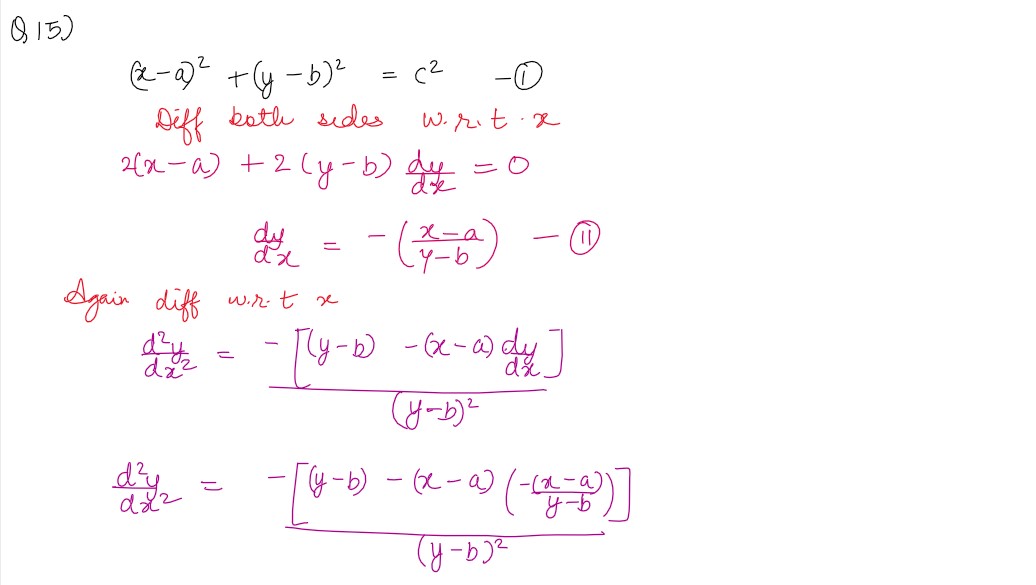 Q15)
(x-a)² + (y-b)² = c² - ①
Diff both sides w.r.t. x
2(x-a) + 2(y-b) dy/dx = 0
dy/dx = - ((x-a)/(y-b)) - ⑪
Again diff w.r.t x
d²y/dx² = -[(y-b) - (x-a) dy/dx] / (y-b)²
d²y/dx² = -[(y-b) - (x-a) (-(x-a)/(y-b))] / (y-b)²